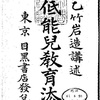 乙竹岩造講述
低能兒教育法
東京 目黒書店發兌